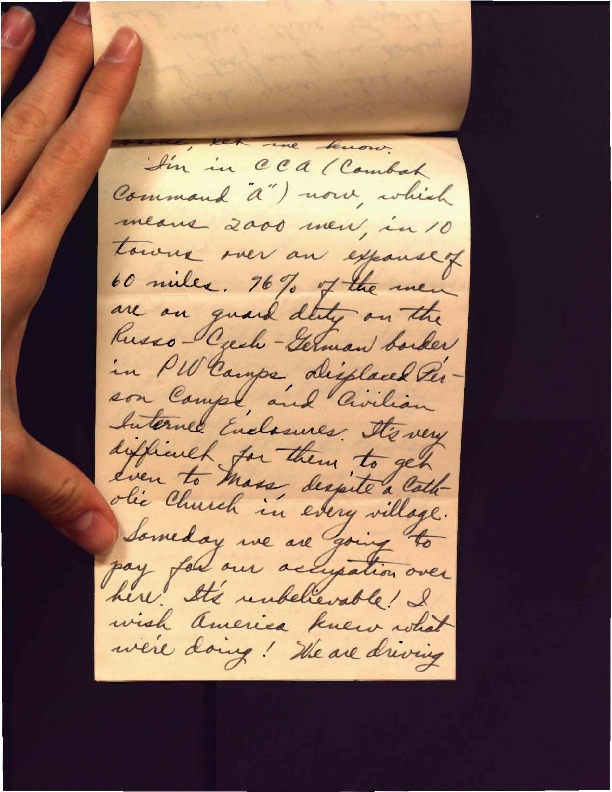 me, let me know.
I'm in CCA (Combat
Command "A") now, which
means 2000 men, in 10
towns over an expanse of
60 miles. 96% of the men
are on guard duty on the
Russo-Czech-German border
in PW Camps, Displaced Per-
son Camps, and Civilian
Internee Enclosures. It's very
difficult for them to get
even to Mass, despite a Cath-
olic Church in every village.
Someday we are going to
pay for our occupation over
here. It's unbelievable! I
wish America knew what
we're doing! We are driving